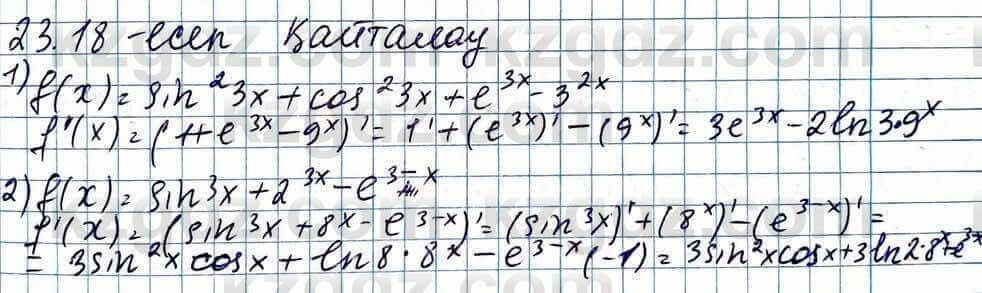 23.18 -есеп Қайталау
1) f(x) = sin²3x + cos²3x + e^3x - 3^2x
f'(x) = (1+e^3x - 9^x)' = 1' + (e^3x)' - (9^x)' = 3e^3x - 2ln3·9^x
2) f(x) = sin³x + 2^3x - e^3-x
f'(x) = (sin³x + 8^x - e^3-x)' = (sin³x)' + (8^x)' - (e^3-x)' =
= 3sin²x cosx + ln8·8^x - e^3-x (-1) = 3sin²xcosx + 3ln2·8^x + e^3-x